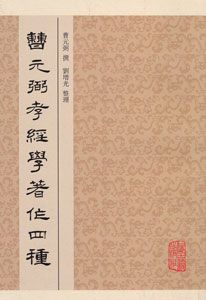 曹元弼 撰 劉增光 整理
曹元弼孝經學著作四種